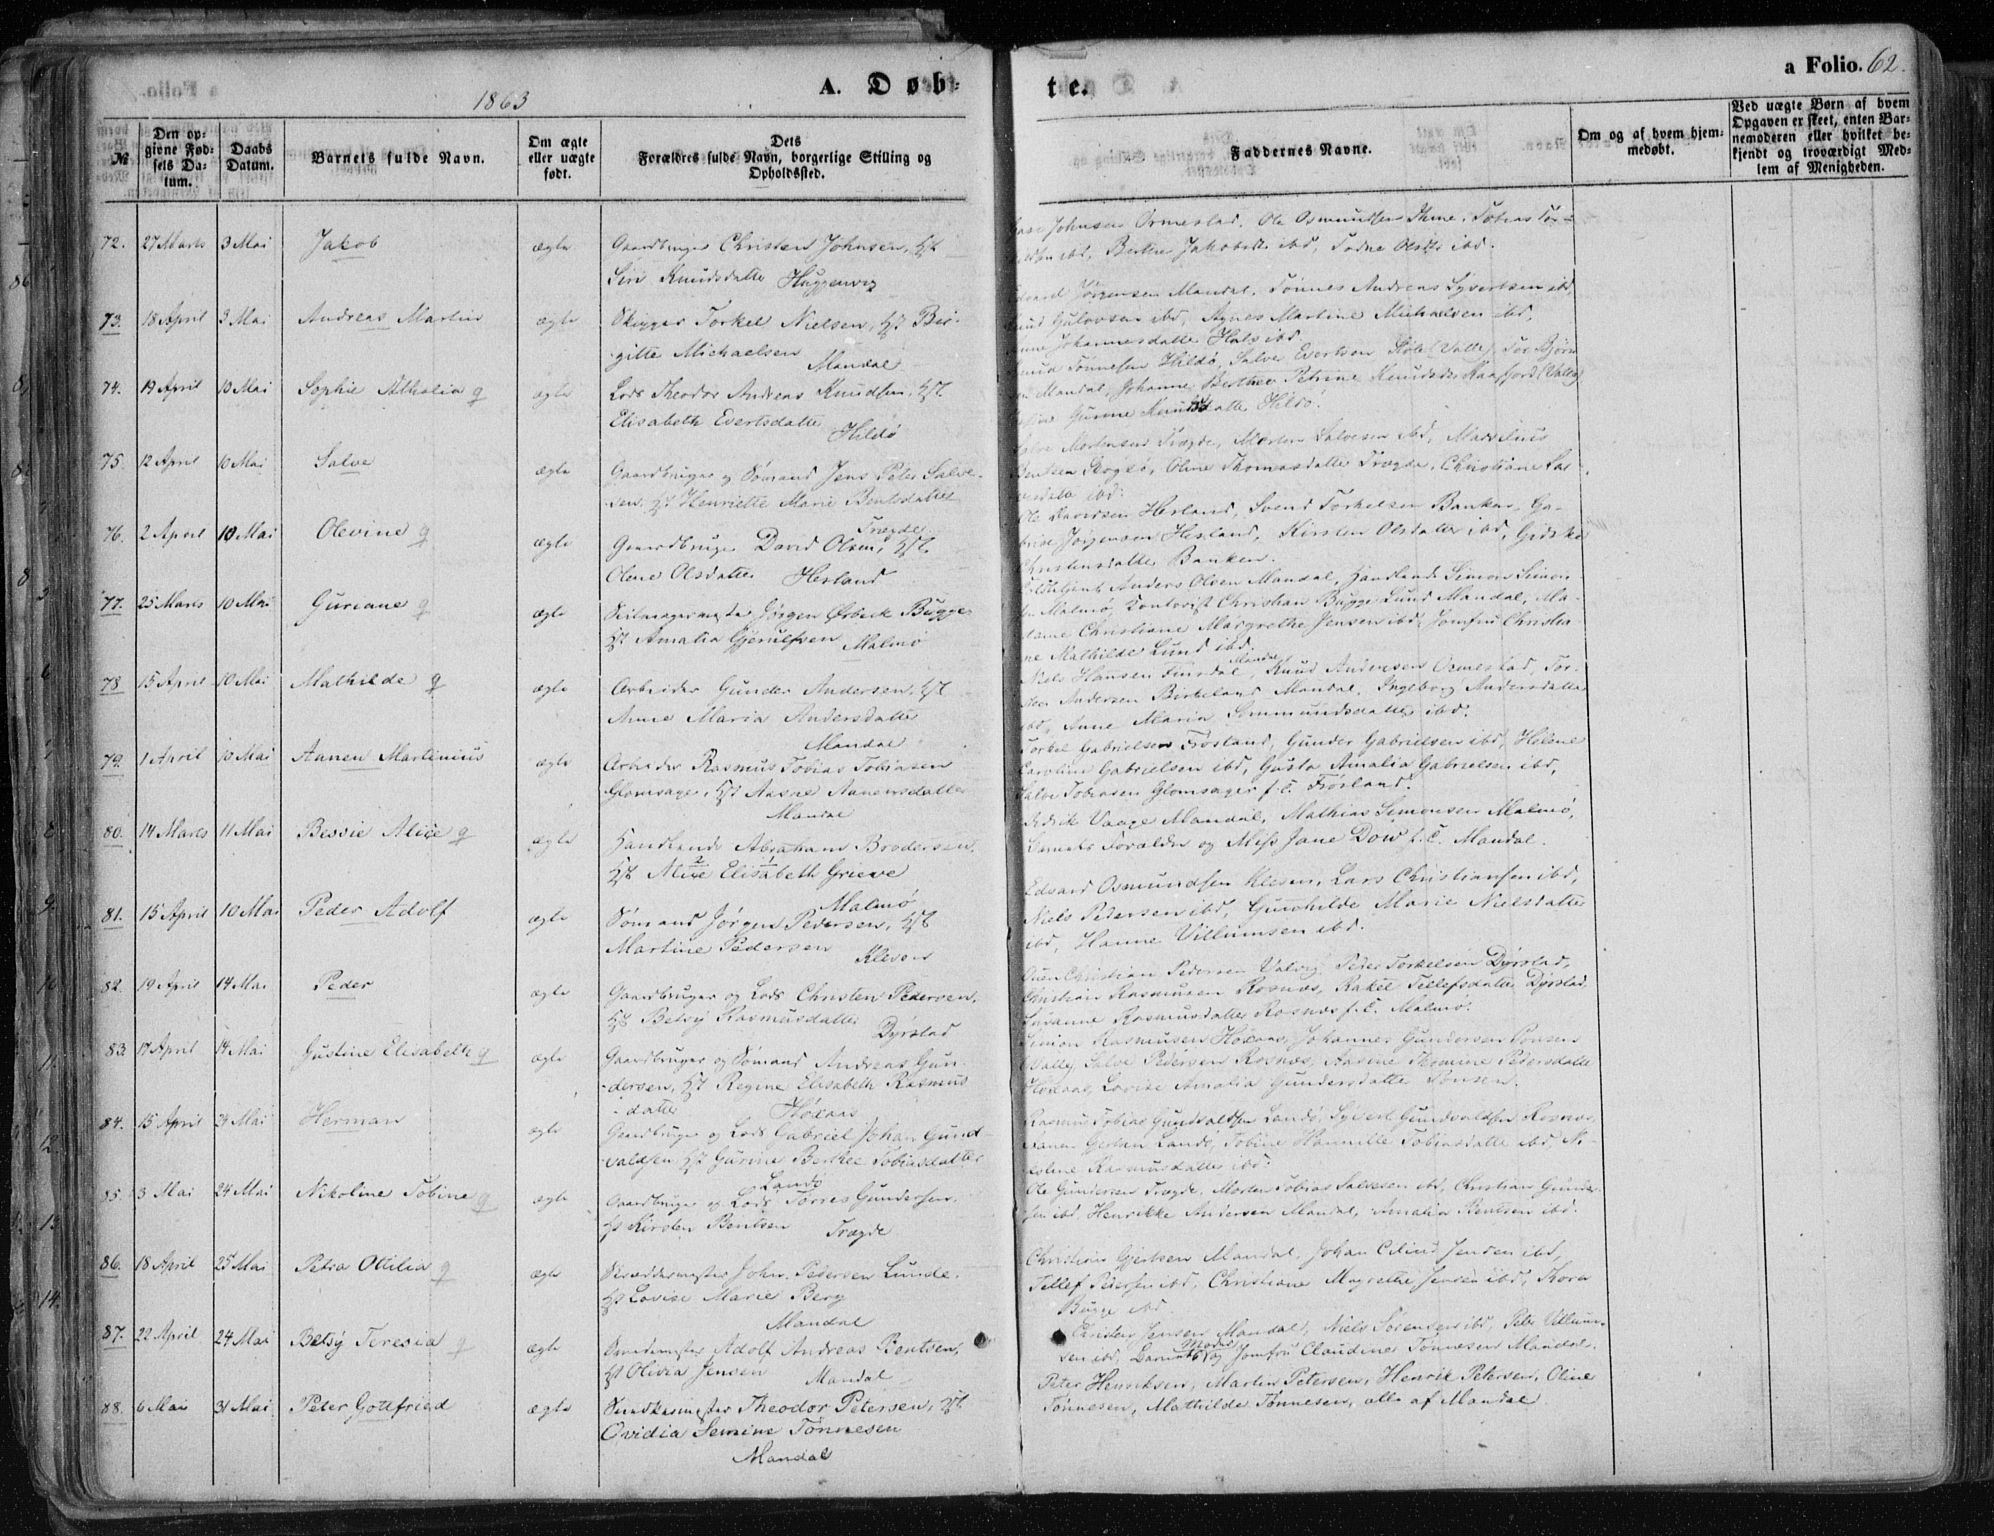 a Folio. 62.
1863
A. Døb-
te.
№
Den op-
givne Fød-
sels Da-
tum.
Daabs
Datum.
Barnets fulde Navn.
Om ægte
eller uægte
født.
Dets
Forældres fulde Navn, borgerlige Stilling og
Opholdssted.
Faddernes Navne.
Om og af hvem hjem-
medøbt.
Ved uægte Børn af hvem
Opgaven er skeet, enten Bar-
nemoderen eller hvilket be-
kjendt og troværdigt Med-
lem af Menigheden.
72. 27 Marts 3 Mai Jakob ægte Gaardbruger Christen Johnsen, Hst
Siri Knudsdatter Huggenvig
Johnsen Ormestad, Ole Osmundsen Ihme, Tobias Tor-
ibd, Berthe Jakobsdtr ibd, Todne Olsdtr ibd.
73. 18 April 3 Mai Andreas Martin ægte Skipper Torkel Nielsen, Hst Bir-
gitte Michaelsen
Mandal
Jørgensen Mandal, Tønnes Andreas Syvertsen ibd
Gulovsen ibd, Agnes Martine Michaelsen ibd,
Johannesdatter Hals ibd.
74. 19 April 10 Mai Sophie Athalia ægte Lods Theodor Andreas Knudsen, Hst
Elisabeth Evertsdatter
Hildø
Tønnesen Hildø, Salve Evertsen (Valle), Tor Bjørn
Mandal, Johanne Berthea Petrine Knudsdtr Kaafjord (Valle)
Gurine Knudsdatter Hildø.
75. 12 April 10 Mai Salve ægte Gaardbruger og Sømand Jens Peter Salve-
sen, Hst Henriette Marie Bentsdatter
Trægde
Salve Mortensen Trægde, Morten Salvesen ibd, Marselius
Bentsen Skogsø, Oline Thomasdatter Trægde, Christiane Sal-
vesdatter ibd.
76. 2 April 10 Mai Olevine ægte Gaardbruger David Olsen, Hst
Olene Olsdatter Hesland
Ole Davidsen Hesland, Svend Torkelsen Banken, Ga-
briel Jørgensen Hesland, Kirsten Olsdatter ibd, Gidske
Christensdatter Banken.
77. 25 Marts 10 Mai Guriane ægte Seilmagermester Jørgen Ørbeck Bugge
Hst Amalia Gjerulfsen Malmø
Anders Olsen Mandal, Handlende Simon Simon-
Malmø, Kontorist Christian Bugge Lund Mandal, Ma-
dame Christiane Margrethe Jensen ibd, Jomfru Christia-
ne Mathilde Lund ibd.
78. 15 April 10 Mai Mathilde ægte Arbeider Gunder Andersen, Hst
Anne Maria Andersdatter
Mandal
Niels Hansen Finsdal Mandal, Knud Andersen Ormestad, Tor-
Andersen Birkeland Mandal, Ingeborg Andersdatter
ibd, Anne Maria Gunmundsdatter ibd.
79. 1 April 10 Mai Aanen Martinius ægte Arbeider Rasmus Tobias Tobiasen
Glomsager, Hst Aasne Aanensdatter
Mandal
Torkel Gabrielsen Frøsland, Gunder Gabrielsen ibd, Helene
Caroline Gabrielsen ibd, Gusta Amalia Gabrielsen ibd,
Salve Tobiasen Glomsager f. C. Frøsland.
80. 14 Marts 11 Mai Bessie Alice ægte Handlende Abraham Brodersen,
Hst Alice Elisabeth Grieve
Malmø
Fredrik Vaage Mandal, Mathias Simonsen Malmø,
Barnets Forældre og Miss Jane Dow f. C. Mandal.
81. 15 April 10 Mai Peder Adolf ægte Sømand Jørgen Pedersen, Hst
Martine Pedersen
Kleven
Edvard Osmundsen Kleven, Lars Christiansen ibd,
Niels Pedersen ibd, Gunhilde Marie Nielsdatter
ibd, Hanne Villumsen ibd.
82. 19 April 14 Mai Peder ægte Gaardbruger og Lods Christen Pedersen,
Hst Betsy Rasmusdatter
Dyrstad
Christian Pedersen Valvig, Peder Torkelsen Dyrstad,
Christian Rasmussen Rosnæs, Rakel Tellefsdatter Dyrstad,
Susanne Rasmusdatter Rosnæs f. C. Malmø.
83. 17 April 14 Mai Gustine Elisabeth ægte Gaardbruger og Sømand Andreas Gun-
dersen, Hst Regine Elisabeth Rasmus
datter Høxaas
Simon Rasmusen Høxaas, Johannes Gundersen Ponsen
(Valle), Salve Pedersen Rosnæs, Thomine Pedersdatter
Høxaas, Lovise Amalia Gundersdatter Ponsen.
84. 15 April 24 Mai Herman ægte Gaardbruger og Lods Gabriel Johan Gund-
valdsen, Hst Gurine Berthea Tobiasdatter
Landø
Rasmus Tobias Gundvaldsen Landø, Syvert Gundvaldsen Rosnæs,
Landø, Tobine Pernille Tobiasdatter ibd,
Rasmusdatter ibd.
85. 3 Mai 24 Mai Nikoline Tobine ægte Gaardbruger og Lods Tørres Gundersen,
Hst Kirsten Bentsen Trægde
Ole Gundersen Trægde, Morten Tobias Salvesen ibd, Christian Gunder-
sen ibd, Henrikke Andersen Mandal, Amalia Bentsen ibd.
86. 18 April 25 Mai Petra Otilia ægte Skræddermester John Pedersen Lunde,
Hst Lovise Marie Berg
Mandal
Christian Gjertsen Mandal, Johan Jensen ibd,
Tellef Pedersen ibd, Christiane Magrethe Jensen ibd, Thora
Bugge ibd
87. 22 April 24 Mai Betsy Teresia ægte Adolf Andreas Bentsen,
Hst Olivia Jensen Mandal
Jensen Mandal, Niels Sørensen ibd, Peter Villum-
sen ibd, Barnets Moder og Jomfru Claudine Tønnesen Mandal.
88. 6 Mai 31 Mai Peter Gottfried ægte Theodor Petersen, Hst
Ovidia Semine Tønnesen
Mandal
Peter Henriksen, Martin Petersen, Henrik Petersen, Oline
Tønnesen, Mathilde Tønnesen, alle af Mandal